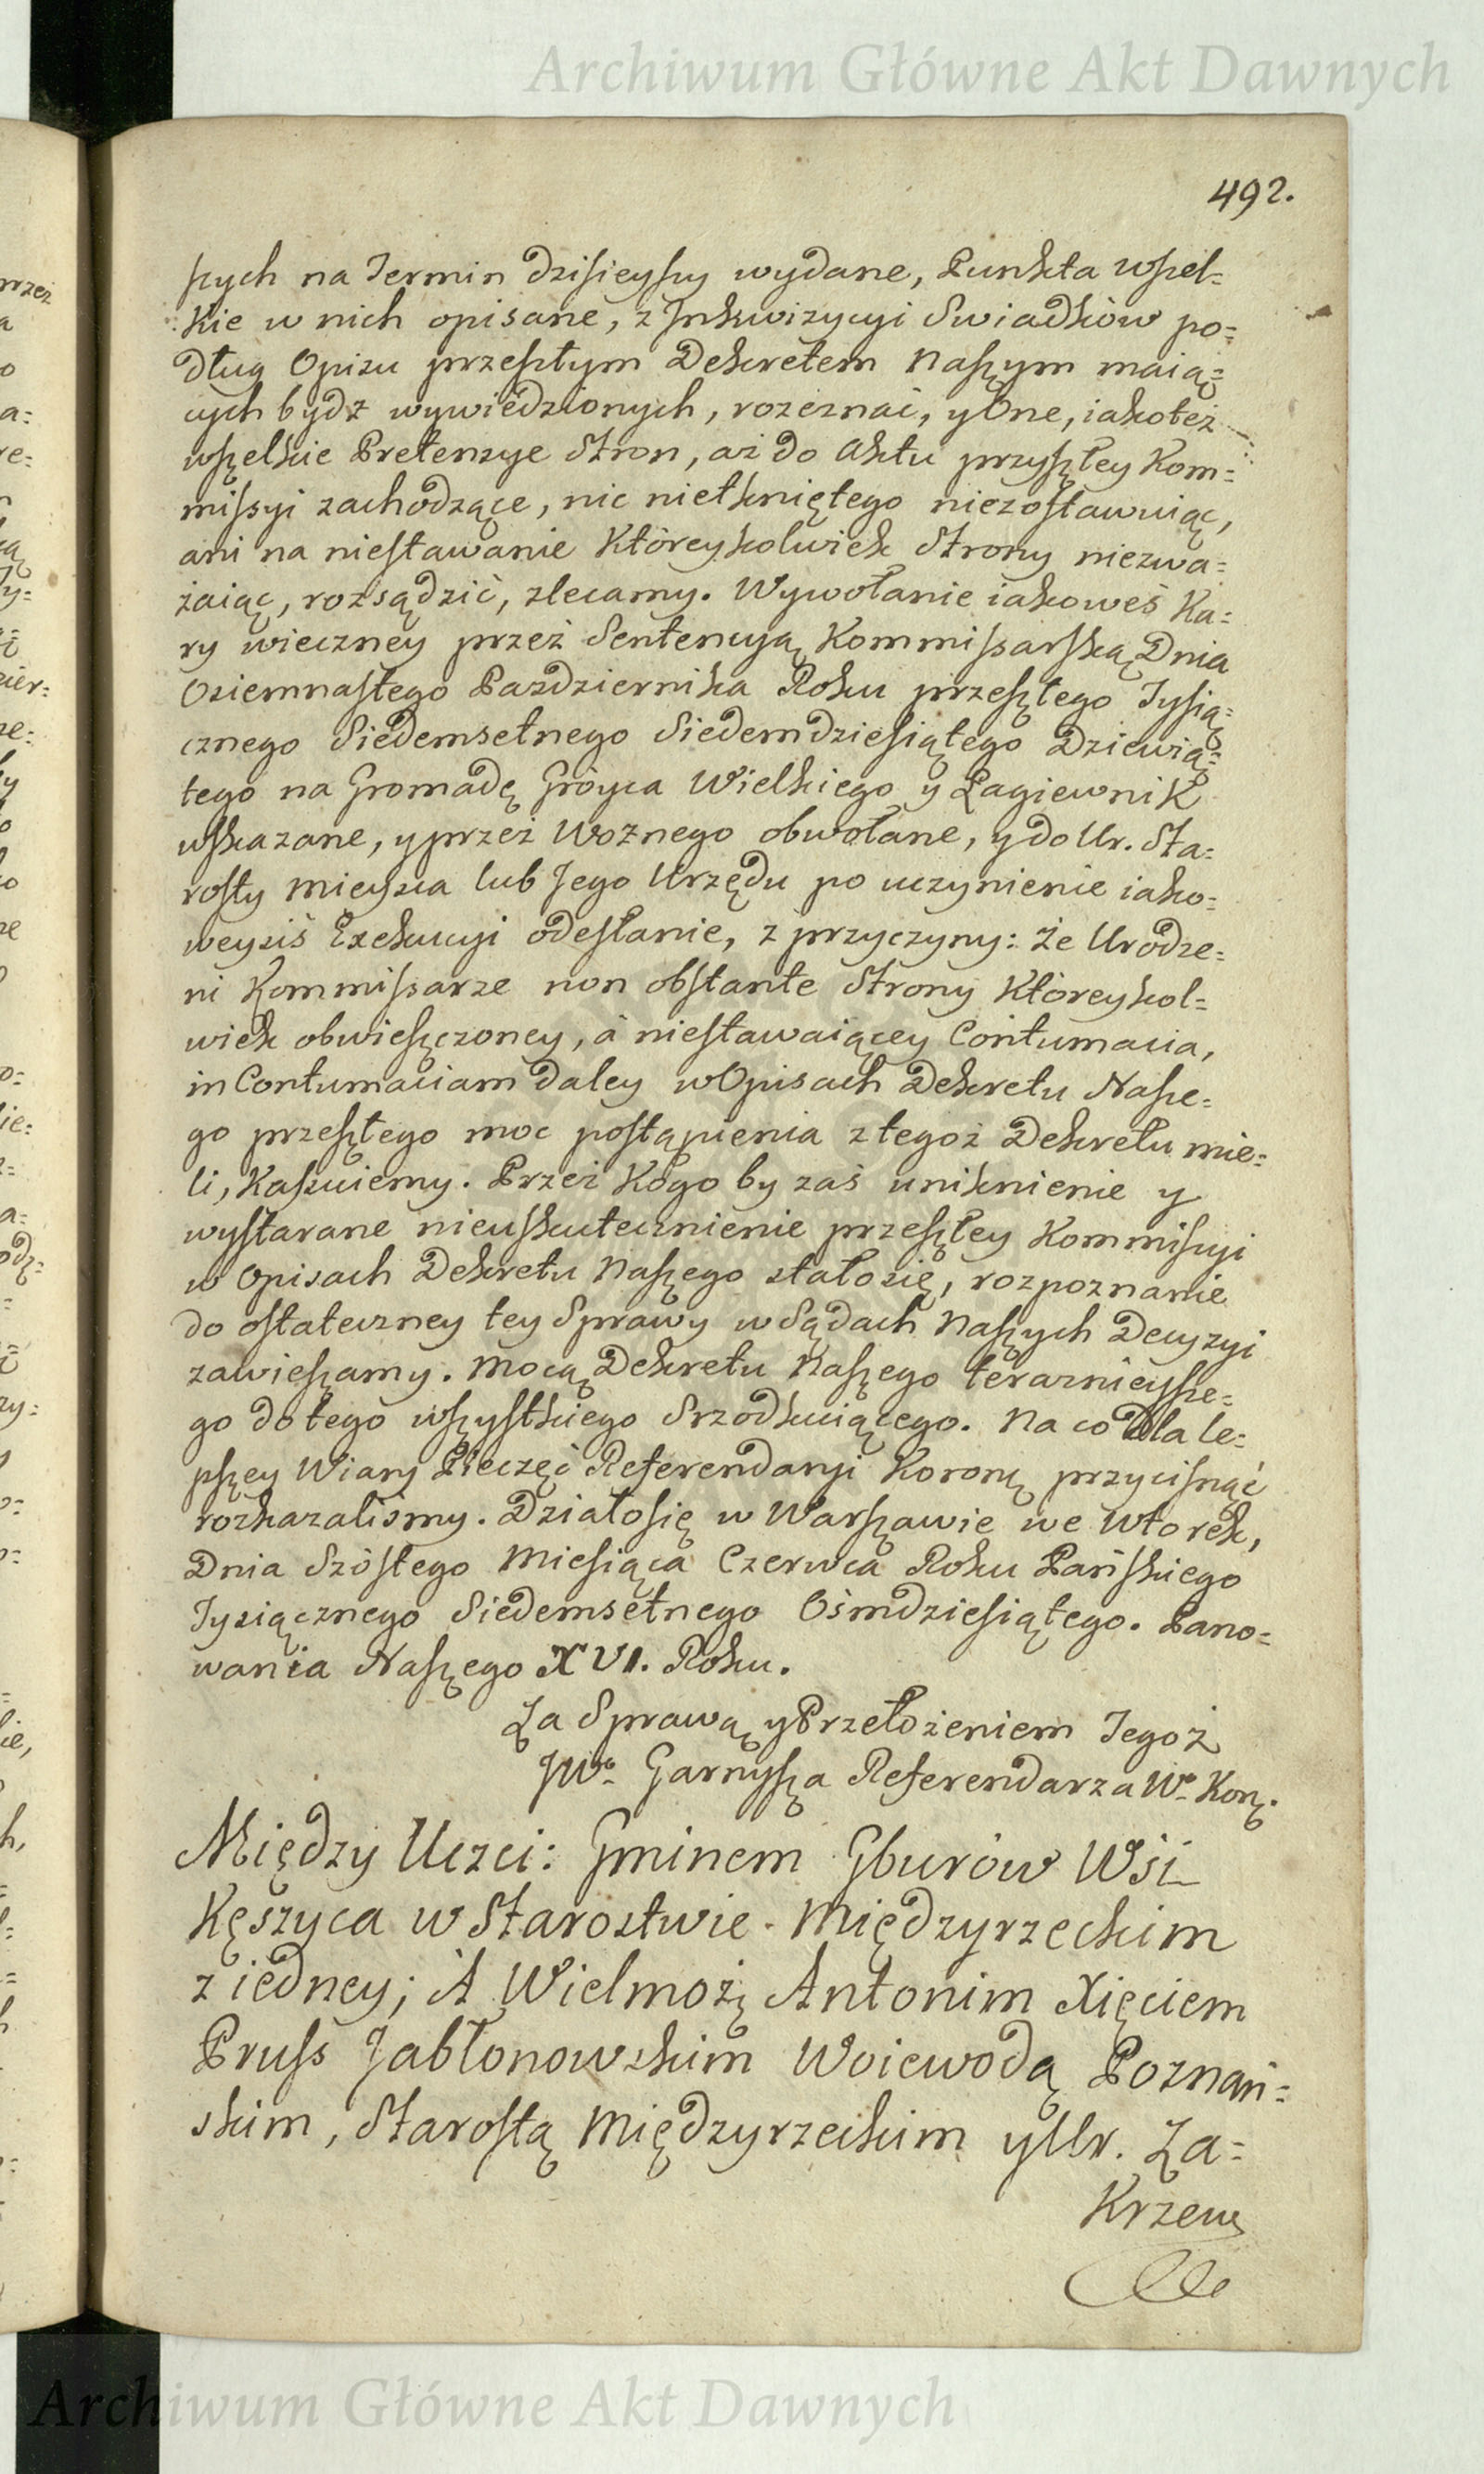 Archiwum Główne Akt Dawnych
492.
szych na Termin dzisieyszy wydane, Punkta wszel=
kie w nich opisane, z Inkwizycyi Swiadków po=
dług Opisu przeszłym Dekretem Naszym maią=
cych bydź wywiedzionych, rozeznać, y One, iakoteż
wszelkie Pretensye Stron, aż do Aktu przyszłey Kom=
missyi zachodzące, nic nietkniętego niezostawuiąc,
ani na niestawanie Któreykolwiek Strony niezwa=
żaiąc, rozsądzić, zlecamy. Wywołanie iakoweś Ka=
ry wieczney przez Sentencyą Kommissarską Dnia
Osiemnastego Pazdziernika Roku przeszłego Tysią=
cznego Siedemsetnego Siedemdziesiątego Dziewią=
tego na Gromadę Gróyca Wielkiego y Łagiewnik
wskazane, y przez Woznego obwołane, y do Ur. Sta=
rosty mieysca lub Jego Urzędu po uczynienie iako=
weysiś Exekucyi odesłanie, z przyczyny: że Urodze=
ni Kommissarze non obstante Strony Któreykol=
wiek obwieszczoney, á niestawaiącey Contumacia,
in Contumaciam daley w Opisach Dekretu Nasze=
go przeszłego moc postąpienia z tegoż Dekretu mie=
li, Kassuiemy. Przez Kogo by zaś uniknienie y
wystarane nieuskutecznienie przeszłey Kommissyi
w Opisach Dekretu Naszego stało się, rozpoznanie
do ostateczney tey Sprawy w Sądach Naszych Decyzyi
zawieszamy. Mocą Dekretu Naszego teraznieysze=
go do tego wszystkiego Srzodkuiącego. Na co dla le=
pszey Wiary Pieczęć Referendaryi Koron. przycisnąć
rozkazalismy. Działo się w Warszawie we Wtorek,
Dnia Szóstego Miesiąca Czerwca Roku Pańskiego
Tysiącznego Siedemsetnego Ośmdziesiątego. Pano=
wania Naszego XVI. Roku.
Za Sprawą y Przełożeniem Tegoż
JWo. Garnysza Referendarza Wo. Kor.
Między Uczci: Gminem Gburów Wśi
Kęszyca w Starostwie Międzyrzeckim
z iedney; A Wielmoż. Antonim Xięciem
Pruss Jabłonowskim Woiewodą Poznań=
skim, Starostą Międzyrzeckim y Ur. Za=
Krzew
Archiwum Główne Akt Dawnych